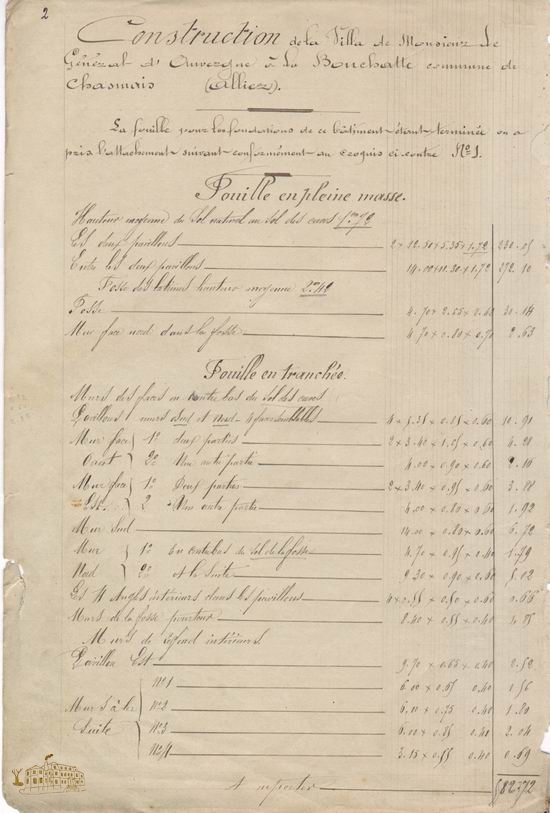 2
Construction de la Villa de Monsieur Le
Général d'Auvergne à La Bouchatte commune de
Chasmais (Allier).
La fouille pour les fondations de ce bâtiment étant terminée on a
pris l'attachement suivant conformément au croquis ci contre N° 1.
Fouille en pleine masse.
Hauteur moyenne du Sol naturel au Sol des caves 1m72
Les deux pavillons 2 × 12.50 × 5.35 × 1.72 230.05
Entre les deux pavillons 14.00 × 11.30 × 1.72 272.10
Fosse des latrines hauteur moyenne
Fosse 4.70 × 2.65 × 30.14
Mur face nord dans la fosse 4.70 × 0.80 × 0.70 2.63
Fouille en tranchée.
Murs des faces en contre bas du Sol des caves
Pavillons murs Sud et Nord 4 faces semblables 4 × × 0.60 10.91
Mur face 1° deux parties 2 × 3.40 × 1.05 × 0.60 4.28
Ouest 2° Une autre partie 4.00 × 0.90 × 0.60 2.16
Mur face 1° Deux parties 2 × 3.40 × 0.95 × 0.60 3.88
Est. 2 Une autre partie 4.00 × 0.80 × 0.60 1.92
Mur Sud 14.00 × 0.80 × 0.60 6.72
Mur 1° En contrebas du Sol de la fosse 4.70 × 0.95 × 0.40 1.79
Nord 2° à la Suite 9.30 × 0.90 × 0.60 5.02
Les 4 Angles intérieurs dans les pavillons 4 × 0.55 × 0.50 × 0.60 0.66
Murs de la fosse pourtour 8.40 × 0.55 × 0.40 1.85
Murs de refend intérieurs
Pavillon Est 9.70 × 0.65 × 0.40 2.52
N° 1 6.00 × 0.65 0.40 1.56
Murs à la N° 2 6.00 × 0.75 0.40 1.80
Suite N° 3 6.00 × 0.85 0.40 2.04
N° 4 3.15 × 0.55 0.40 0.69
A reporter 582.72